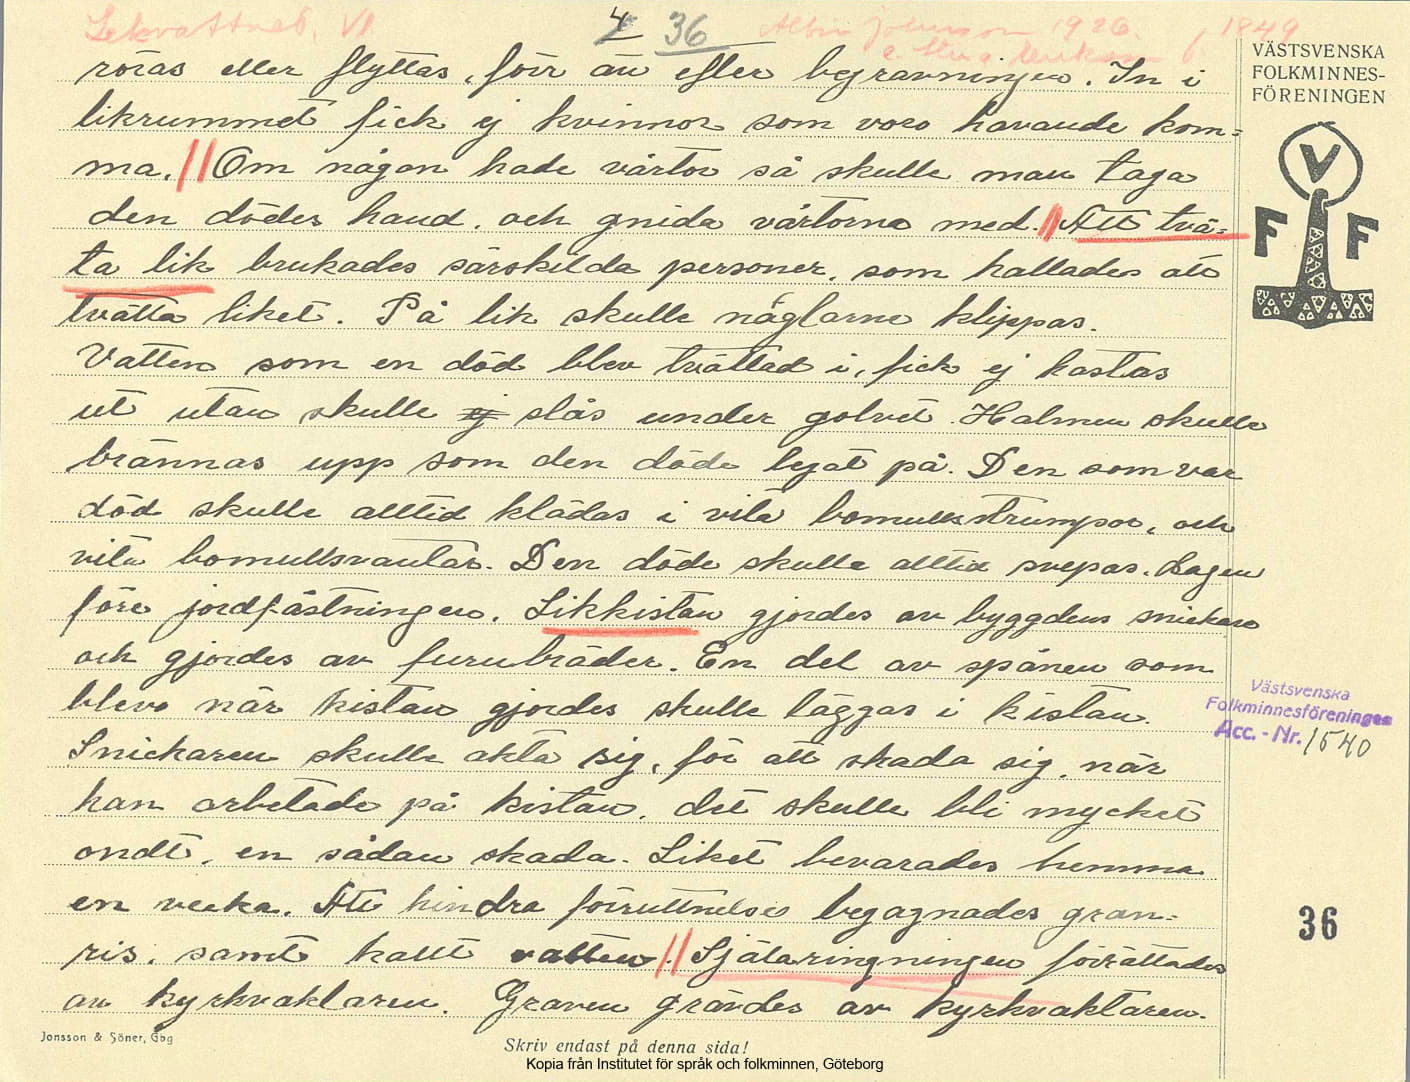 Lekvattnet, VI
4
36
Albin Johnson 1926.
1849
röras eller flyttas, förr än efter begravningen. In i
likrummet fick ej kvinnor som voro havande kom=
ma. // Om någon hade vårtor så skulle man taga
den dödes hand, och gnida vårtorna med. // Att två=
ta lik brukades särskilda personer, som kallades att
tvätta liket. På lik skulle naglarne klippas.
Vatten som en död blev tvättad i, fick ej kastas
ut utan skulle ej slås under golvet. Halmen skulle
brännas upp som den döde legat på. Den som var
död skulle alltid klädas i vita bomullsstrumpor, och
vita bomullsvantar. Den döde skulle alltid svepas. Dagen
före jordfästningen. Likkistan gjordes av byggdens snickare
och gjordes av furubräder. En del av spånen som
blevo när kistan gjordes skulle läggas i kistan.
Snickaren skulle akta sig, för att skada sig, när
han arbetade på kistan, det skulle bli mycket
ondt, en sådan skada. Liket bevarades hemma
en vecka. Att hindra förruttnelse begagnades gran=
ris, samt kallt vatten. // Själaringningen förättades
av kyrkvaktaren. Graven grävdes av kyrkvaktaren.
VÄSTSVENSKA
FOLKMINNES-
FÖRENINGEN
V
F F
Västsvenska
Folkminnesföreningen
Acc. - Nr. 1540
36
Jonsson & Söner, Gbg
Skriv endast på denna sida!
Kopia från Institutet för språk och folkminnen, Göteborg